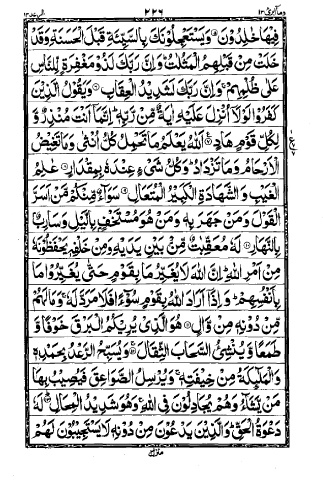 الرعد ١٣ ٢٢٦ وما ابرئ ١٣
فِيْهَا خٰلِدُوْنَ ۝ وَيَسْتَعْجِلُوْنَكَ بِالسَّيِّئَةِ قَبْلَ الْحَسَنَةِ وَقَدْ
خَلَتْ مِنْ قَبْلِهِمُ الْمَثُلٰتُ ؕ وَاِنَّ رَبَّكَ لَذُوْ مَغْفِرَةٍ لِّلنَّاسِ
عَلٰى ظُلْمِهِمْ ۚ وَاِنَّ رَبَّكَ لَشَدِيْدُ الْعِقَابِ ۝ وَيَقُوْلُ الَّذِيْنَ
كَفَرُوْا لَوْلَاۤ اُنْزِلَ عَلَيْهِ اٰيَةٌ مِّنْ رَّبِّهٖ ؕ اِنَّمَاۤ اَنْتَ مُنْذِرٌ وَّ
لِكُلِّ قَوْمٍ هَادٍ ۝ اَللّٰهُ يَعْلَمُ مَا تَحْمِلُ كُلُّ اُنْثٰى وَمَا تَغِيْضُ
الْاَرْحَامُ وَمَا تَزْدَادُ ؕ وَكُلُّ شَىْءٍ عِنْدَهٗ بِمِقْدَارٍ ۝ عٰلِمُ
الْغَيْبِ وَالشَّهَادَةِ الْكَبِيْرُ الْمُتَعَالِ ۝ سَوَآءٌ مِّنْكُمْ مَّنْ اَسَرَّ
الْقَوْلَ وَمَنْ جَهَرَ بِهٖ وَمَنْ هُوَ مُسْتَخْفٍۭ بِالَّيْلِ وَسَارِبٌۢ
بِالنَّهَارِ ۝ لَهٗ مُعَقِّبٰتٌ مِّنْۢ بَيْنِ يَدَيْهِ وَمِنْ خَلْفِهٖ يَحْفَظُوْنَهٗ
مِنْ اَمْرِ اللّٰهِ ؕ اِنَّ اللّٰهَ لَا يُغَيِّرُ مَا بِقَوْمٍ حَتّٰى يُغَيِّرُوْا مَا
بِاَنْفُسِهِمْ ؕ وَاِذَاۤ اَرَادَ اللّٰهُ بِقَوْمٍ سُوْٓءًا فَلَا مَرَدَّ لَهٗ ۚ وَمَا لَهُمْ
مِّنْ دُوْنِهٖ مِنْ وَّالٍ ۝ هُوَ الَّذِىْ يُرِيْكُمُ الْبَرْقَ خَوْفًا وَّ
طَمَعًا وَّيُنْشِئُ السَّحَابَ الثِّقَالَ ۝ وَيُسَبِّحُ الرَّعْدُ بِحَمْدِهٖ
وَالْمَلٰٓئِكَةُ مِنْ خِيْفَتِهٖ ۚ وَيُرْسِلُ الصَّوَاعِقَ فَيُصِيْبُ بِهَا
مَنْ يَّشَآءُ وَهُمْ يُجَادِلُوْنَ فِى اللّٰهِ ۚ وَهُوَ شَدِيْدُ الْمِحَالِ ۝ لَهٗ
دَعْوَةُ الْحَقِّ ؕ وَالَّذِيْنَ يَدْعُوْنَ مِنْ دُوْنِهٖ لَا يَسْتَجِيْبُوْنَ لَهُمْ